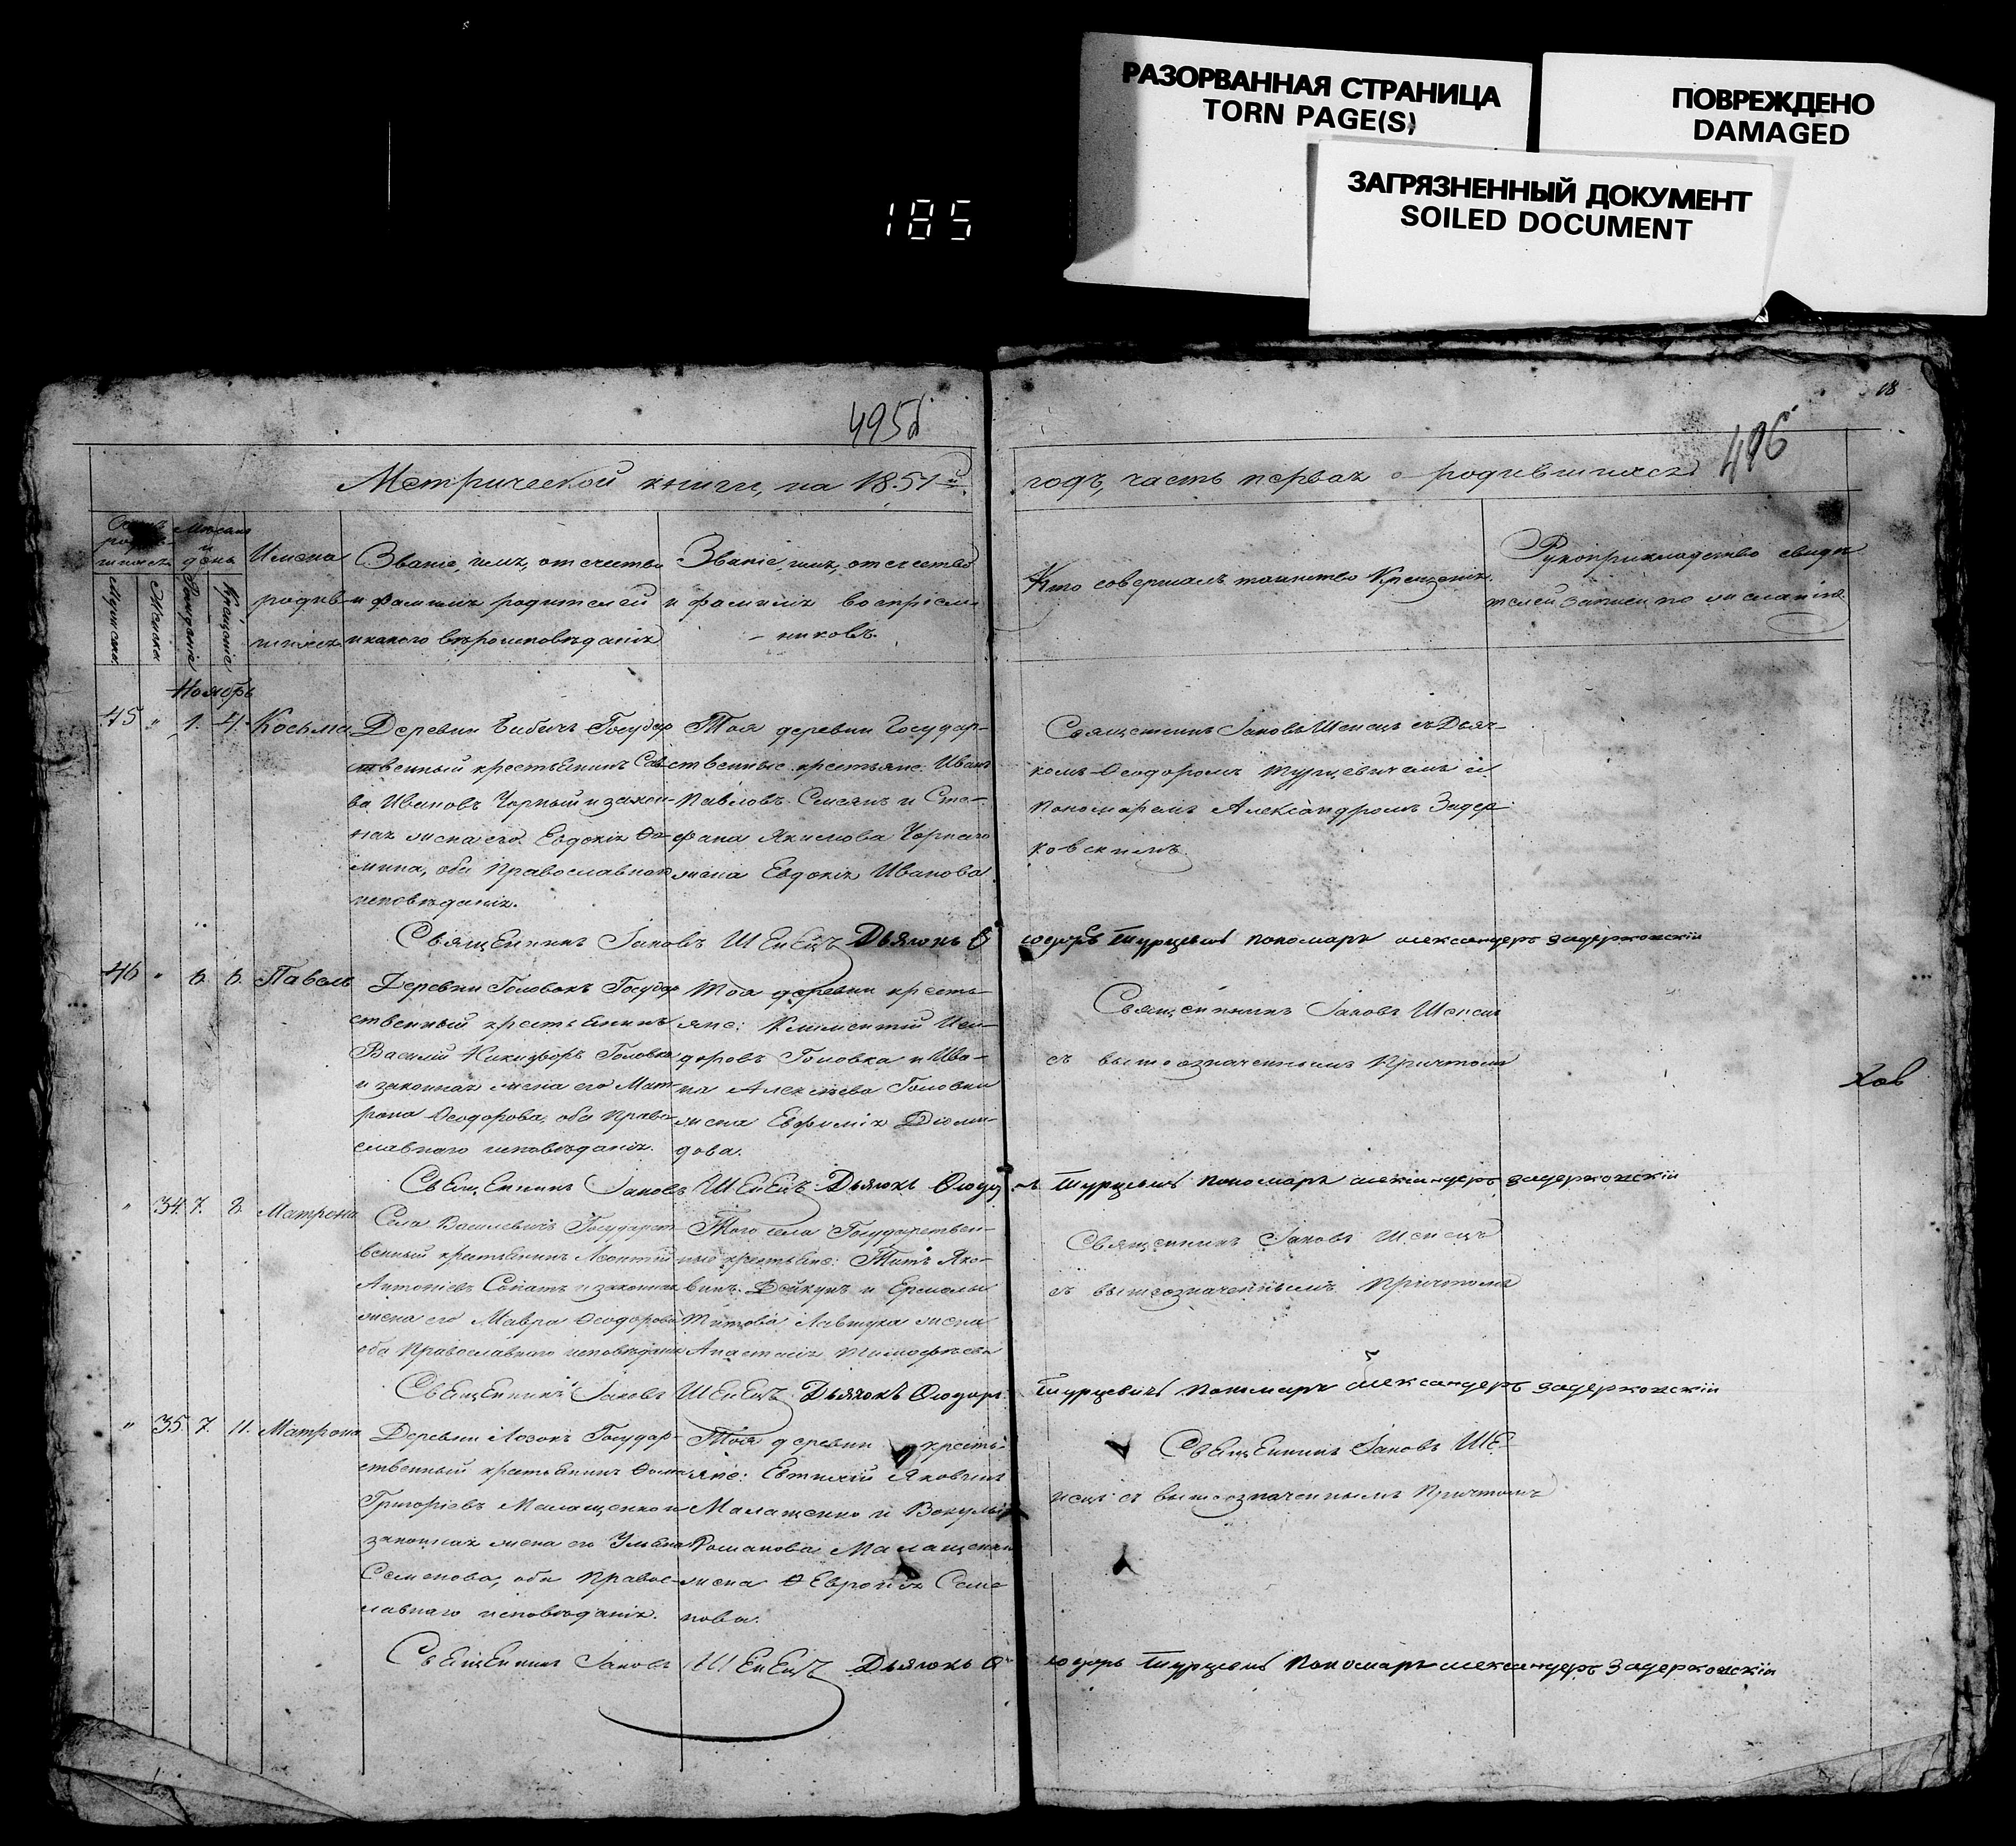 РАЗОРВАННАЯ СТРАНИЦА
TORN PAGE(S)
ПОВРЕЖДЕНО
DAMAGED
ЗАГРЯЗНЕННЫЙ ДОКУМЕНТ
SOILED DOCUMENT
185
18
495б
496
Метрической книги, на 1851й
годъ, часть первая о родившихся
Мѣсяцъ
и
день
Мужеска
Женска
Рожденія
Крещенія
Имена
родив-
шихся
Званіе, имя, отчество
и фамилія родителей и
и какого вѣроисповѣданія
Званіе, имя, отчество
фамилія воспріем-
никовъ.
Кто совершалъ таинство Крещенія.
Рукоприкладство свидѣ
телей записи по желанію
Ноябрь
45 " 1. 4. Косьма
Деревни Государ
ственный крестьянинъ Сав
ва Ивановъ Чорный и закон-
ная жена его Евдокія Ѳо-
мина, оба Православнаго
исповѣданія.
Тоя деревни Государ-
ственные крестьяне: Иванъ
Павловъ и Сте-
фана Якимова Чорнаго
жена Евдокія Иванова
Священникъ Іаковъ Шенецъ съ Дьяч-
комъ Ѳеодоромъ Турцевичемъ и
Пономаремъ Александромъ Задер
ковскимъ.
Священникъ Іаковъ Шенецъ Дьячокъ Ѳ
еодоръ Турцевичъ пономарь александеръ задерковскій
46 " 6. 6. Павелъ
Деревни Головокъ Государ
ственный крестьянинъ
Василій Никифоръ Головка
и законная жена его Мат-
рона Ѳеодорова, оба Право-
славнаго исповѣданія.
Тоя деревни кресть
яне: Климентій Иси-
доровъ Головка и Ива-
на Алексѣева Головки
жена Евфимія Діоми-
дова.
Священникъ Іаковъ Шенецъ
съ вышеозначеннымъ Причтомъ
Хов
Священникъ Іаковъ Шенецъ Дьячокъ Ѳеодо
ръ Турцевичъ пономарь александеръ задерковскій
" 34. 7. 8. Матрона
Села Василевичъ Государст-
венный крестьянинъ Леонтій
Антоніевъ и законная
жена его Мавра Ѳеодорова
оба Православнаго исповѣданія
Того села Государствен-
ные крестьяне: Титъ Яко-
винъ Дейкунъ и Ермолы
Титова жена
Анастасія Тимофѣева
Священникъ Іаковъ Шенецъ
съ вышеозначеннымъ Причтомъ
Священникъ Іаковъ Шенецъ Дьячокъ Ѳеодоръ
Турцевичъ пономарь александеръ задерковскій
" 35. 7. 11. Матрона
Деревни Лозокъ Государ-
ственный крестьянинъ Ѳома
Григоріевъ Малащенко и
законная жена его Ульяна
Семенова, оба Правос-
лавнаго исповѣданія.
Тоя деревни кресть-
яне: Евтихій Яковинъ
Малащенко и Вокулы
Романова Малащенки
жена Ѳевронія Семе
нова.
Священникъ Іаковъ Ше-
нецъ съ вышеозначеннымъ Причтомъ
Священникъ Іаковъ Шенецъ Дьячокъ Ѳ
еодоръ Турцевичъ пономарь александеръ задерковскій